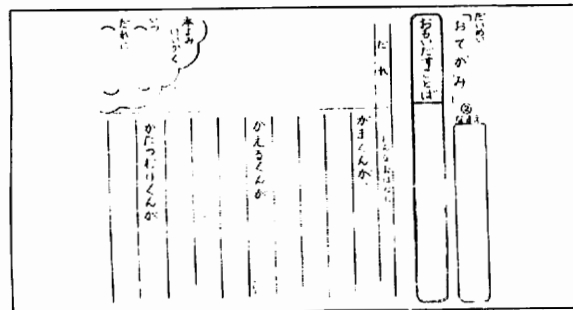 だいめい
「おてがみ」
なまえ
おもいだすことば
だれ
がまくんが、
かえるくんが
かたつむりくんが
いつ
だれに